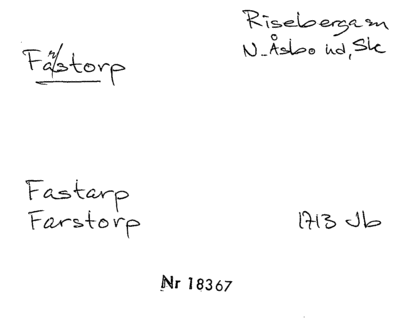 Risebergasn
N. Åsbo hd, Sk
Farstorp
Fastarp
Farstorp 1713 Jb
Nr 18367